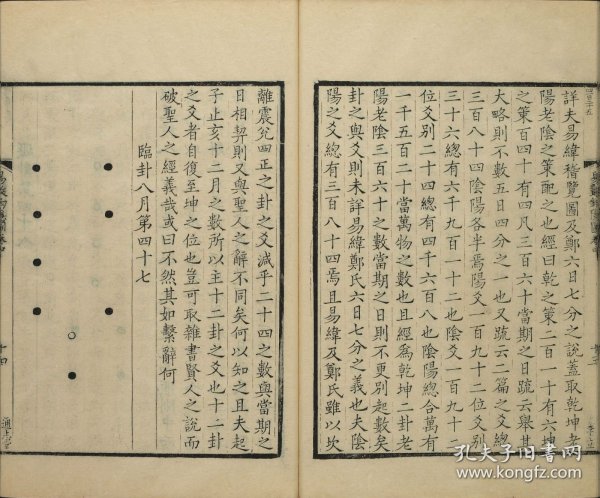 詳夫易緯稽覽圖及鄭六日七分之說蓋取乾坤老
陽老陰之策配之也經曰乾之策二百一十有六坤
之策百四十有四凡三百六十當期之日䟽云舉其
大略則不數五日四分之一也又䟽云二篇之爻總
三百八十四陰陽各半焉陽爻一百九十二位爻別
三十六總有六千九百一十二也陰爻一百九十二
位爻別二十四總有四千六百八也陰陽總合萬有
一千五百二十當萬物之數也且經爲乾坤二卦老
陽老陰三百六十之數當期之日則不更別起數矣
卦之與爻則未詳易緯鄭氏六日七分之義也夫陰
陽之爻總有三百八十四焉且易緯及鄭氏雖以坎
離震兊四正之卦之爻減乎二十四之數與當期之
日相契則又與聖人之辭不同矣何以知之且夫起
子止亥十二月之數所以主十二卦之爻也十二卦
之爻者自復至坤之位也豈可取雜書賢人之說而
破聖人之經義哉或曰不然其如繫辭何
臨卦八月第四十七
十四
通志堂
孔夫子旧书网
www.kongfz.com